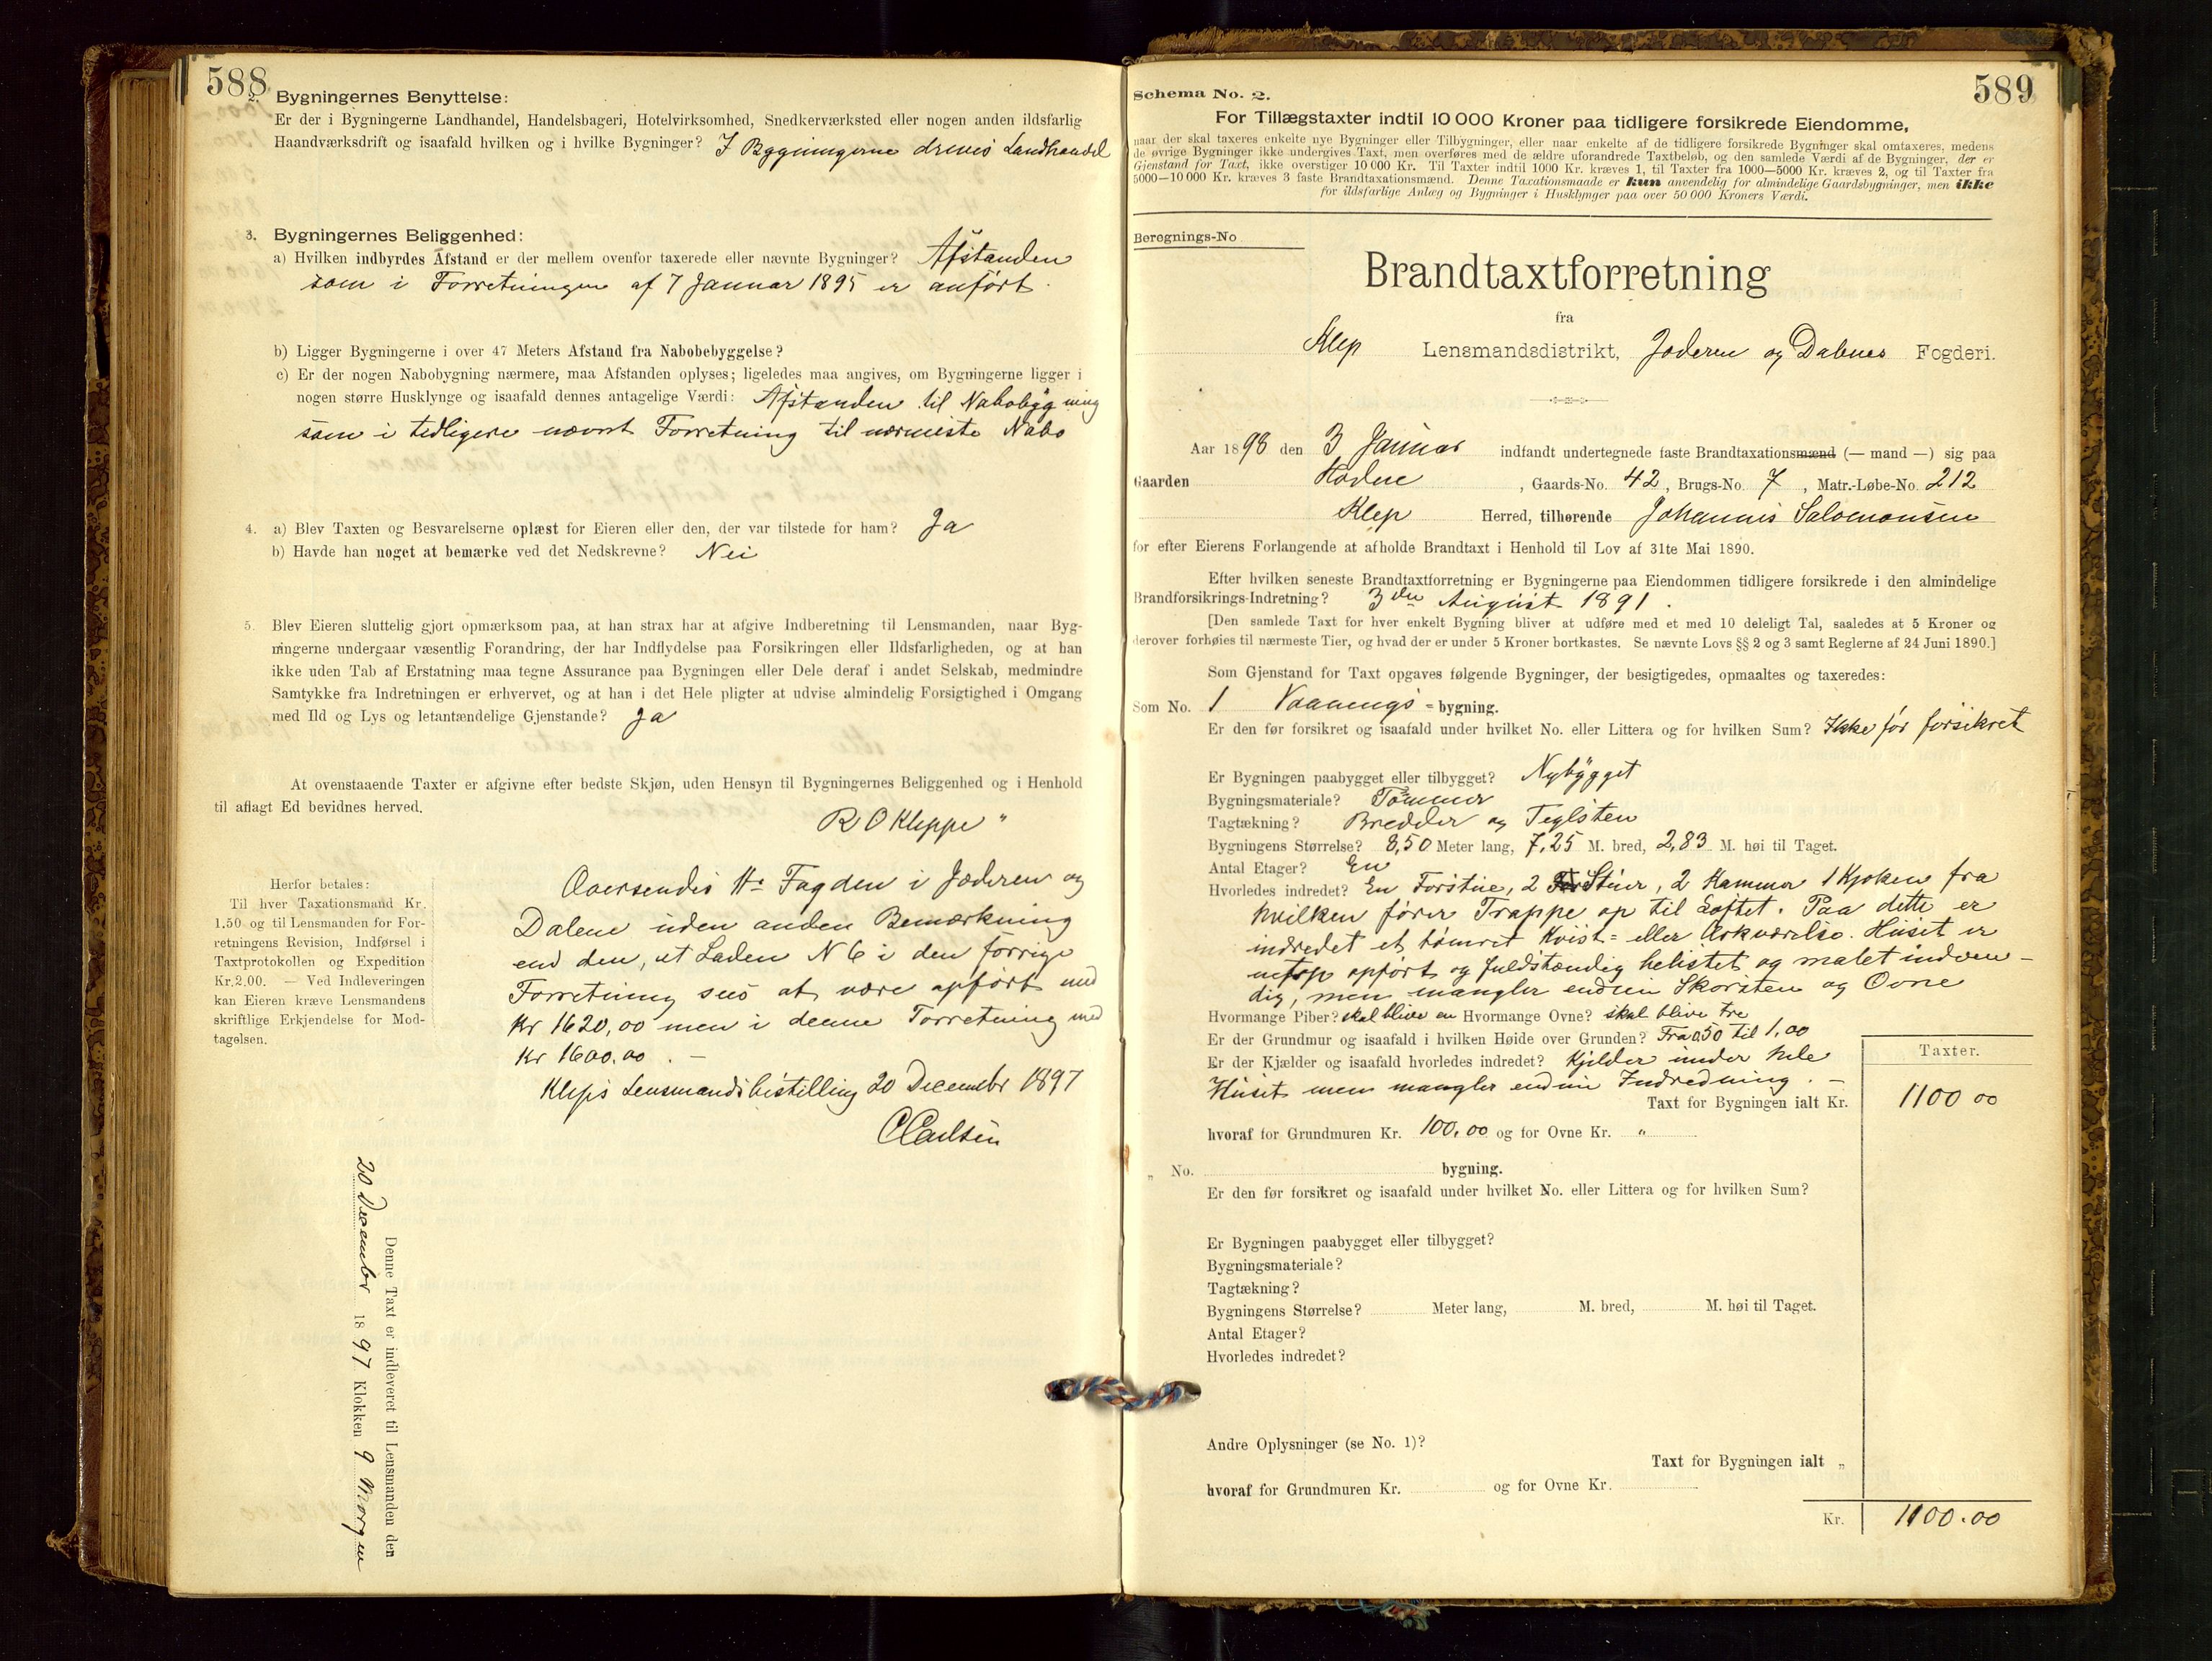 588
2. Bygningernes Benyttelse:
Er der i Bygningerne Landhandel, Handelsbageri, Hotelvirksomhed, Snedkerværksted eller nogen anden ildsfarlig
Haandværksdrift og isaafald hvilken og i hvilke Bygninger? I Bygningerne drives Landhandel
3. Bygningernes Beliggenhed:
a) Hvilken indbyrdes Afstand er der mellem ovenfor taxerede eller nævnte Bygninger? Afstanden
som i Forretningen af 7 Januar 1895 er anført.
b) Ligger Bygningerne i over 47 Meters Afstand fra Nabobebyggelse?
c) Er der nogen Nabobygning nærmere, maa Afstanden oplyses; ligeledes maa angives, om Bygningerne ligger i
nogen større Husklynge og isaafald dennes antagelige Værdi: Afstanden til Nabobygning
som i tidligere nævnt Forretning til nærmeste Nabo
4. a) Blev Taxten og Besvarelserne oplæst for Eieren eller den, der var tilstede for ham? Ja
b) Havde han noget at bemærke ved det Nedskrevne? Nei
5. Blev Eieren sluttelig gjort opmærksom paa, at han strax har at afgive Indberetning til Lensmanden, naar Byg-
ningerne undergaar væsentlig Forandring, der har Indflydelse paa Forsikringen eller Ildsfarligheden, og at han
ikke uden Tab af Erstatning maa tegne Assurance paa Bygningen eller Dele deraf i andet Selskab, medmindre
Samtykke fra Indretningen er erhvervet, og at han i det Hele pligter at udvise almindelig Forsigtighed i Omgang
med Ild og Lys og letantændelige Gjenstande? Ja
At ovenstaaende Taxter er afgivne efter bedste Skjøn, uden Hensyn til Bygningernes Beliggenhed og i Henhold
til aflagt Ed bevidnes herved.
R O Kleppe "
Herfor betales:
Til hver Taxationsmand Kr.
1.50 og til Lensmanden for For-
retningens Revision, Indførsel i
Taxtprotokollen og Expedition
Kr. 2.00. — Ved Indleveringen
kan Eieren kræve Lensmandens
skriftlige Erkjendelse for Mod-
tagelsen.
Oversendes Hr Fogden i Jæderen og
Dalene uden anden Bemærkning
end den, at Laden N 6 i den forrige
Forretning sees at være opført med
Kr 1620,00 men i denne Forretning med
Kr 1600.00. —
Kleps Lensmandsbestilling 20 December 1897
C Carlsen
Denne Taxt er indleveret til Lensmanden den
20 December 1897 Klokken 9 Morgen
589
Schema No. 2.
For Tillægstaxter indtil 10 000 Kroner paa tidligere forsikrede Eiendomme,
naar der skal taxeres enkelte nye Bygninger eller Tilbygninger, eller naar enkelte af de tidligere forsikrede Bygninger skal omtaxeres, medens
de øvrige Bygninger ikke undergives Taxt, men overføres med de ældre uforandrede Taxtbeløb, og den samlede Værdi af de Bygninger, der er
Gjenstand for Taxt, ikke overstiger 10 000 Kr. Til Taxter indtil 1000 Kr. kræves 1, til Taxter fra 1000—5000 Kr. kræves 2, og til Taxter fra
5000—10 000 Kr. kræves 3 faste Brandtaxationsmænd. Denne Taxationsmaade er kun anvendelig for almindelige Gaardsbygninger, men ikke
for ildsfarlige Anlæg og Bygninger i Husklynger paa over 50 000 Kroners Værdi.
Beregnings-No
Brandtaxtforretning
fra
Klep Lensmandsdistrikt, Jæderen og Dalenes Fogderi.
Aar 1898 den 3 Januar indfandt undertegnede faste Brandtaxationsmænd (— mand —) sig paa
Gaarden Hodne, Gaards-No. 42, Brugs-No. 7, Matr.-Løbe-No. 212
Klep Herred, tilhørende Johannes Salomonsen
for efter Eierens Forlangende at afholde Brandtaxt i Henhold til Lov af 31te Mai 1890.
Efter hvilken seneste Brandtaxtforretning er Bygningerne paa Eiendommen tidligere forsikrede i den almindelige
Brandforsikrings-Indretning? 3die August 1891.
[Den samlede Taxt for hver enkelt Bygning bliver at udføre med et med 10 deleligt Tal, saaledes at 5 Kroner og
derover forhøies til nærmeste Tier, og hvad der er under 5 Kroner bortkastes. Se nævnte Lovs §§ 2 og 3 samt Reglerne af 24 Juni 1890.]
Som Gjenstand for Taxt opgaves følgende Bygninger, der besigtigedes, opmaaltes og taxeredes:
Som No. 1 Vaanings-bygning.
Er den før forsikret og isaafald under hvilket No. eller Littera og for hvilken Sum? Ikke før forsikret
Er Bygningen paabygget eller tilbygget? Nybygget
Bygningsmateriale? Tømmer
Tagtækning? Bredder og Teglsten
Bygningens Størrelse? 8,50 Meter lang, 7,25 M. bred, 2,83 M. høi til Taget.
Antal Etager? En
Hvorledes indredet? En Forstue, 2 Stuer, 2 Kammer 1 Kjøken fra
hvilken fører Trappe op til Loftet. Paa dette er
indredet et tømret Kvist= eller Arkværelse. Huset er
netop opført og fuldstændig helistet og malet indven-
dig, men mangler endnu Skorsten og Ovne
Hvormange Piber? skal blive en Hvormange Ovne? skal blive tre
Er der Grundmur og isaafald i hvilken Høide over Grunden? Fra 0,50 til 1,00
Er der Kjælder og isaafald hvorledes indredet? Kjelder under hele
Huset men mangler endnu Indredning. —
Taxter.
Taxt for Bygningen ialt Kr. 1100 00
hvoraf for Grundmuren Kr. 100.00 og for Ovne Kr. "
" No. bygning.
Er den før forsikret og isaafald under hvilket No. eller Littera og for hvilken Sum?
Er Bygningen paabygget eller tilbygget?
Bygningsmateriale?
Tagtækning?
Bygningens Størrelse? Meter lang, M. bred, M. høi til Taget.
Antal Etager?
Hvorledes indredet?
Andre Oplysninger (se No. 1)?
Taxt for Bygningen ialt "
hvoraf for Grundmuren Kr. og for Ovne Kr.
Kr. 1100.00